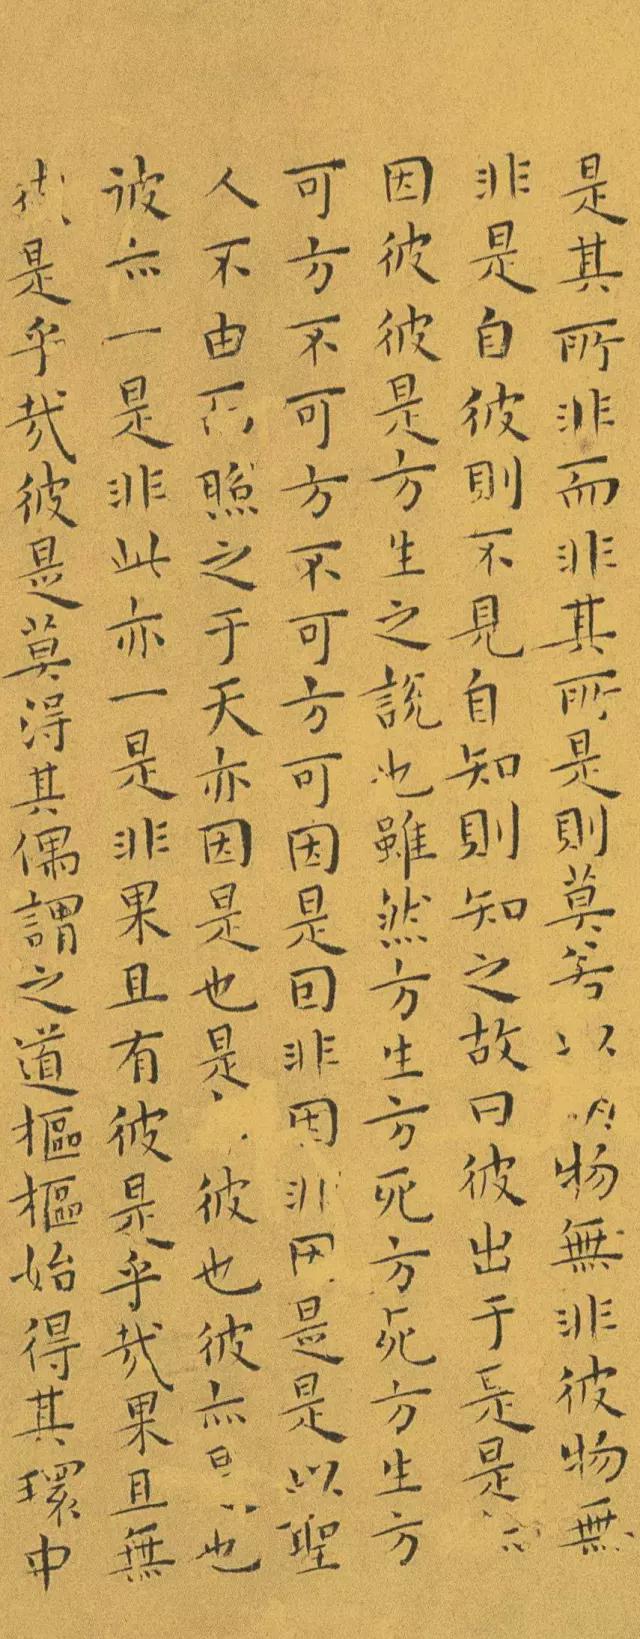 是其所非而非其所是則莫若以物無非彼物無
非是自彼則不見自知則知之故曰彼出于是是
因彼彼是方生之說也雖然方生方死方死方生方
可方不可方不可方可因是因非因非因是是以聖
人不由而照之于天亦因是也是彼也彼亦也
彼亦一是非此亦一是非果且有彼是乎哉果且無
彼是乎哉彼是莫得其偶謂之道樞樞始得其環中